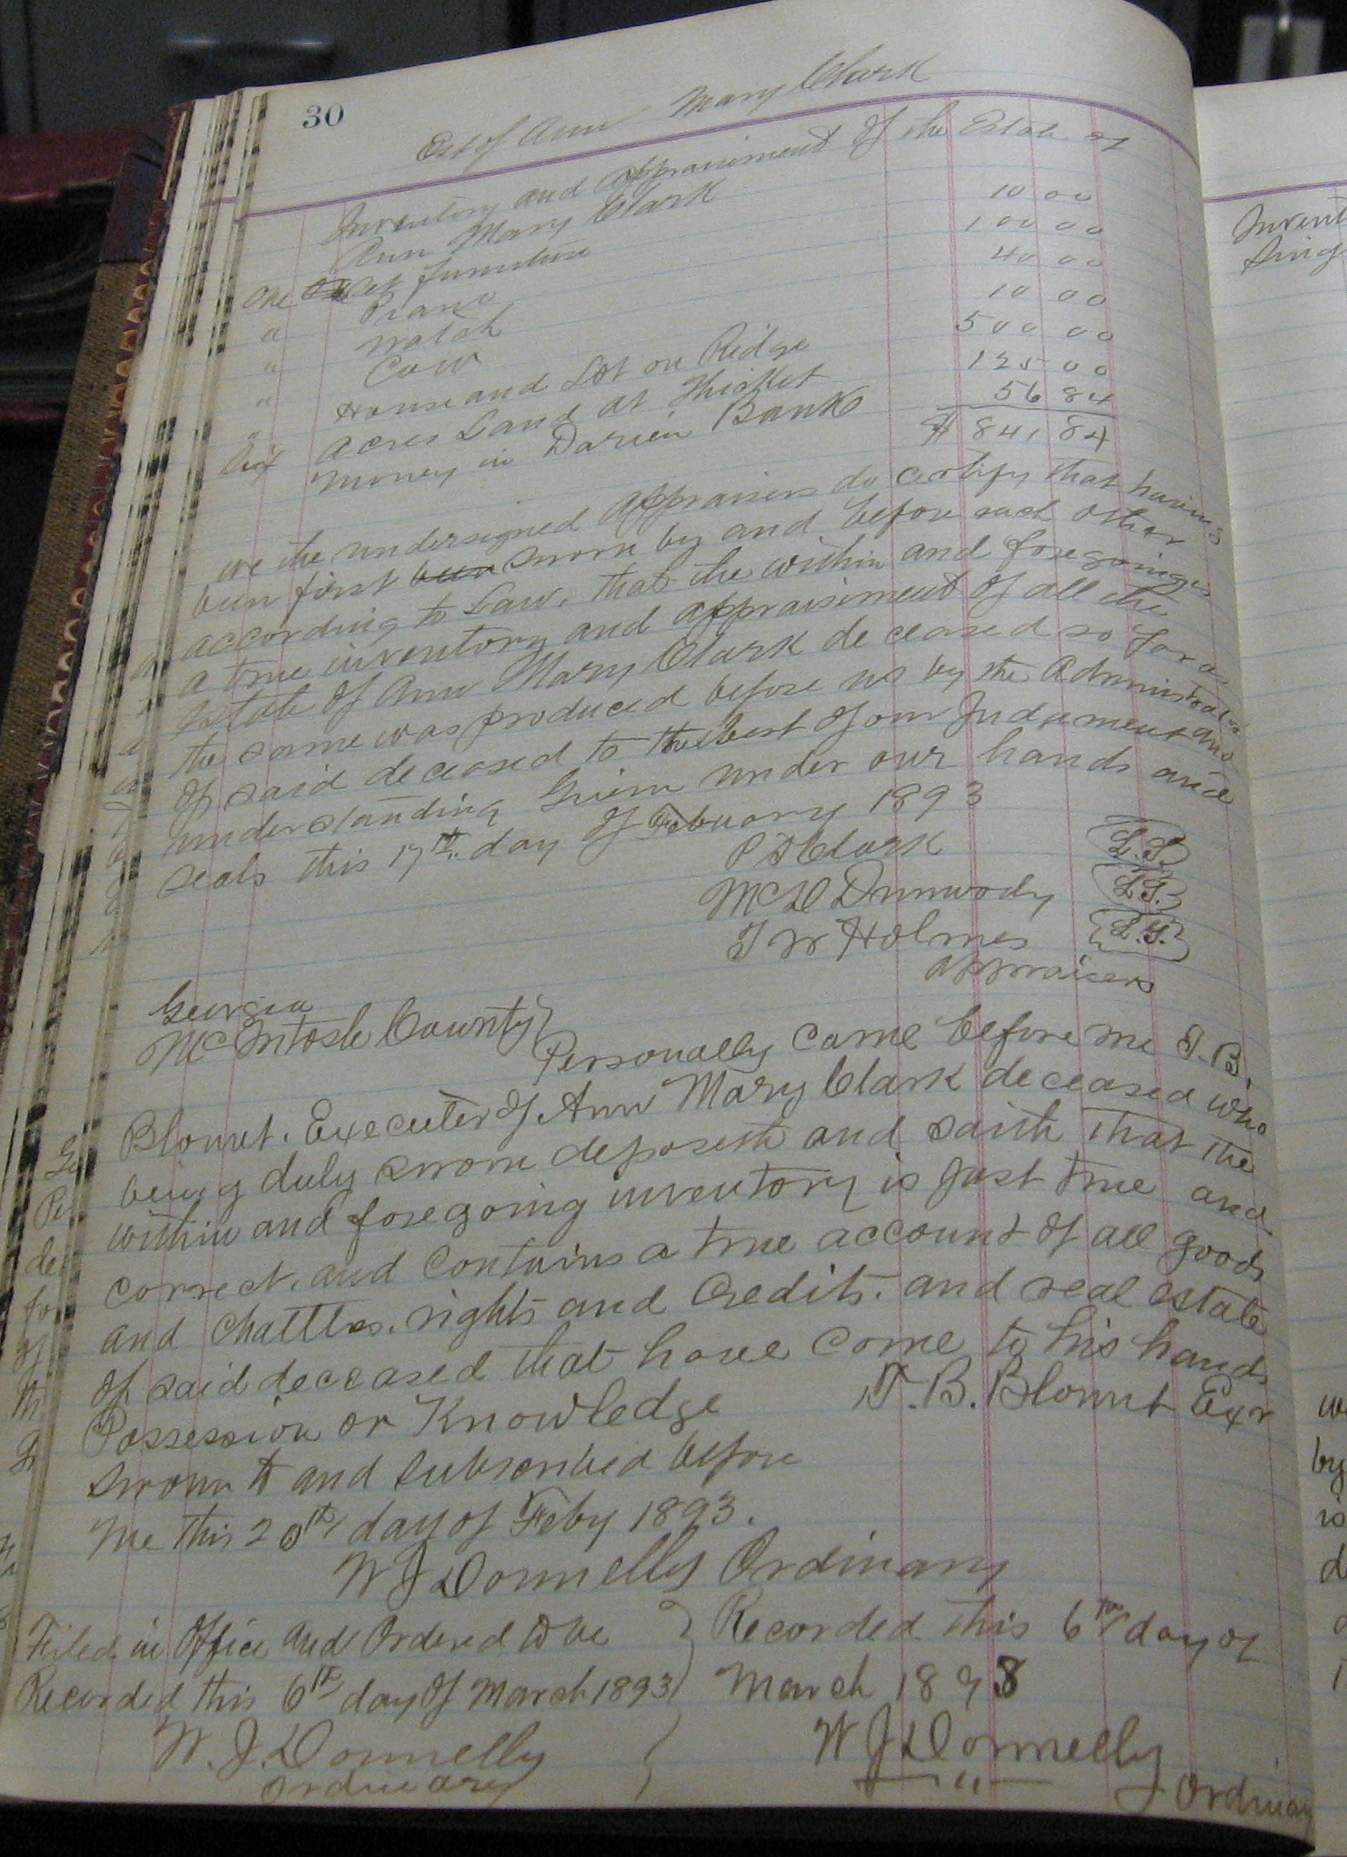 30
Est of Ann Mary Clark
Inventory and appraisiment of the Estate of
Ann Mary Clark
One Set furniture 10 00
" Piano 100 00
" Watch 40 00
" Cow 10 00
" House and Lot on Ridge 500 00
Six acres Land at Thicket 125 00
Money in Darien Bank 56 84
$ 841 84
we the undersigned appraisers do certify that having
been first been sworn by and before each other
according to Law, that the within and foregoing is
a true inventory and appraisiment of all the
estate of Ann Mary Clark deceased so far as
the same was produced before us by the Administrator
of said deceased to the best of our Judgement and
understanding Given under our hands and
seals this 17th day of Febuary 1893
P S Clark L.S.
McD Dunwody L.S.
T W Holmes L.S.
appraisers
Georgia
McIntosh County }
Personally came before me T. B.
Blount. Executer of Ann Mary Clark deceased who
being duly sworn deposeth and saith that the
within and foregoing inventory is just true and
correct. and contains a true account of all goods
and chattles. rights and credits. and real estate
of said deceased that have come to his hands
Possession or Knowledge T. B. Blount Exr
Sworn to and subscribed before
me this 20th day of Feby 1893.
W J Donnelly Ordinary
Filed in Office and Ordered to be
Recorded this 6th day of March 1893
W. J. Donnelly
Ordinary
Recorded this 6th day of
March 1893
W J Donnelly
" Ordinary
Invent
Sing
we
by
is
d